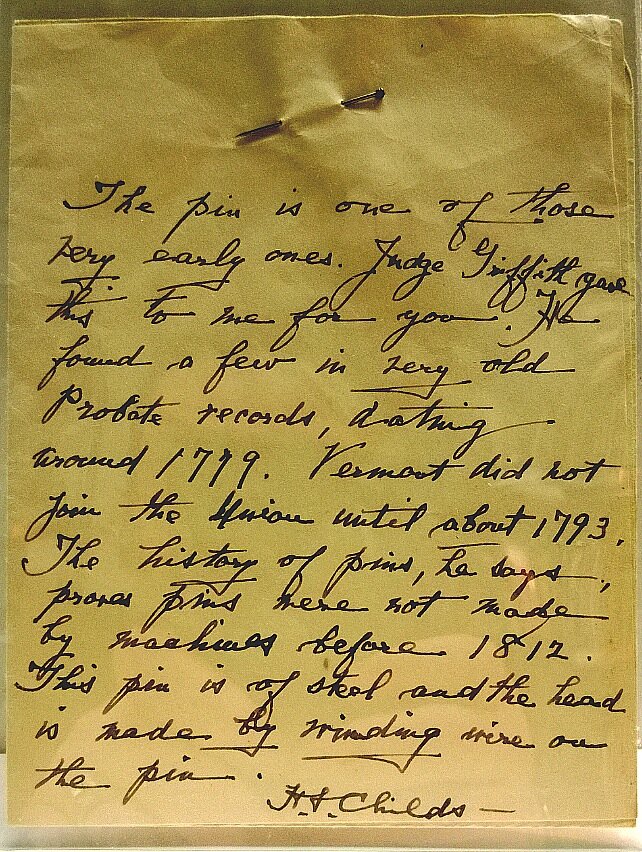 The pin is one of those
very early ones. Judge Griffith gave
this to me for you. He
found a few in very old
Probate records, dating
around 1779. Vermont did not
join the Union until about 1793.
The history of pins, he says,
proves pins were not made
by machines before 1812.
This pin is of steel and the head
is made by winding wire on
the pin.
H.S. Childs —